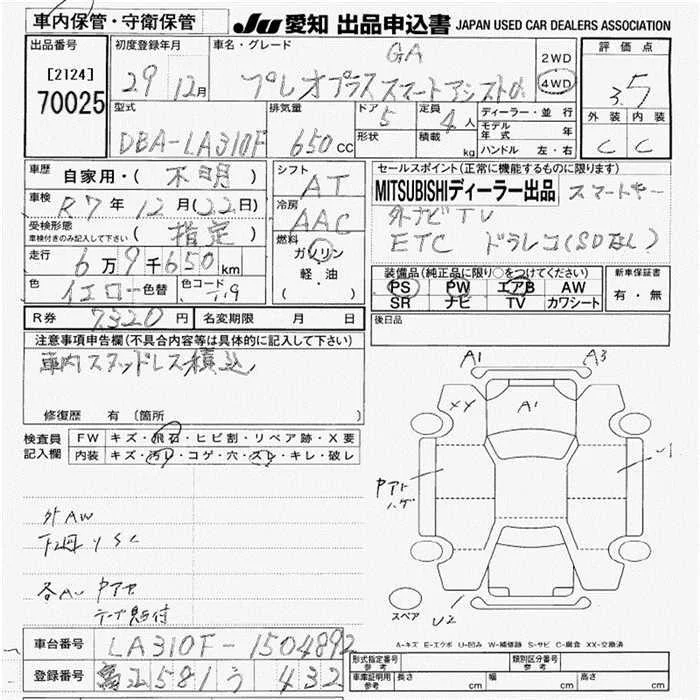 車内保管・守衛保管
JU 愛知 出品申込書 JAPAN USED CAR DEALERS ASSOCIATION
出品番号
[2124]
70025
初度登録年月
29 12月
車名・グレード
GA
プレオプラス スマートアシスト
2WD
4WD
評価点
3.5
外装 内装
C C
型式
DBA-LA310F
排気量
650 CC
ドア
5
形状
定員
4人
積載
kg
ディーラー・並行
モデル年式 年
ハンドル 左・右
車歴
自家用・( 不明 )
車検
R7年 12月(22日)
受検形態
車検付きのみ記入して下さい
( 指定 )
走行
6万9千650km
色
イエロー 色替
色コード
シフト
AT
冷房
AAC
燃料
ガソリン
軽・油
( )
セールスポイント(正常に機能するものに限ります)
MITSUBISHIディーラー出品 スマートキー
外ナビTV
ETC ドラレコ(SDなし)
装備品(純正品に限り○をつけてください)
PS PW エアB AW
SR ナビ TV カワシート
新車保証書
有・無
後日品
R券 7320円 名変期限 月 日
注意事項申告欄(不具合内容等は具体的に記入して下さい)
車内スタッドレス積込
修復歴 有 〔箇所 〕
検査員
記入欄
FW キズ・飛石・ヒビ割・リペア跡・X要
内装 キズ・汚レ・コゲ・穴・スレ・キレ・破レ
外AW
下廻りSC
A1
A3
XY
A1
U2
スペア
A-キズ E-エクボ U-凹み W-補修跡 S-サビ C-腐食 XX-交換済
車台番号 LA310F-1504892
登録番号 581 う 432
形式指定番号
参考
類別区分番号
参考
車庫証明用
参考
長さ cm 幅 cm 高さ cm